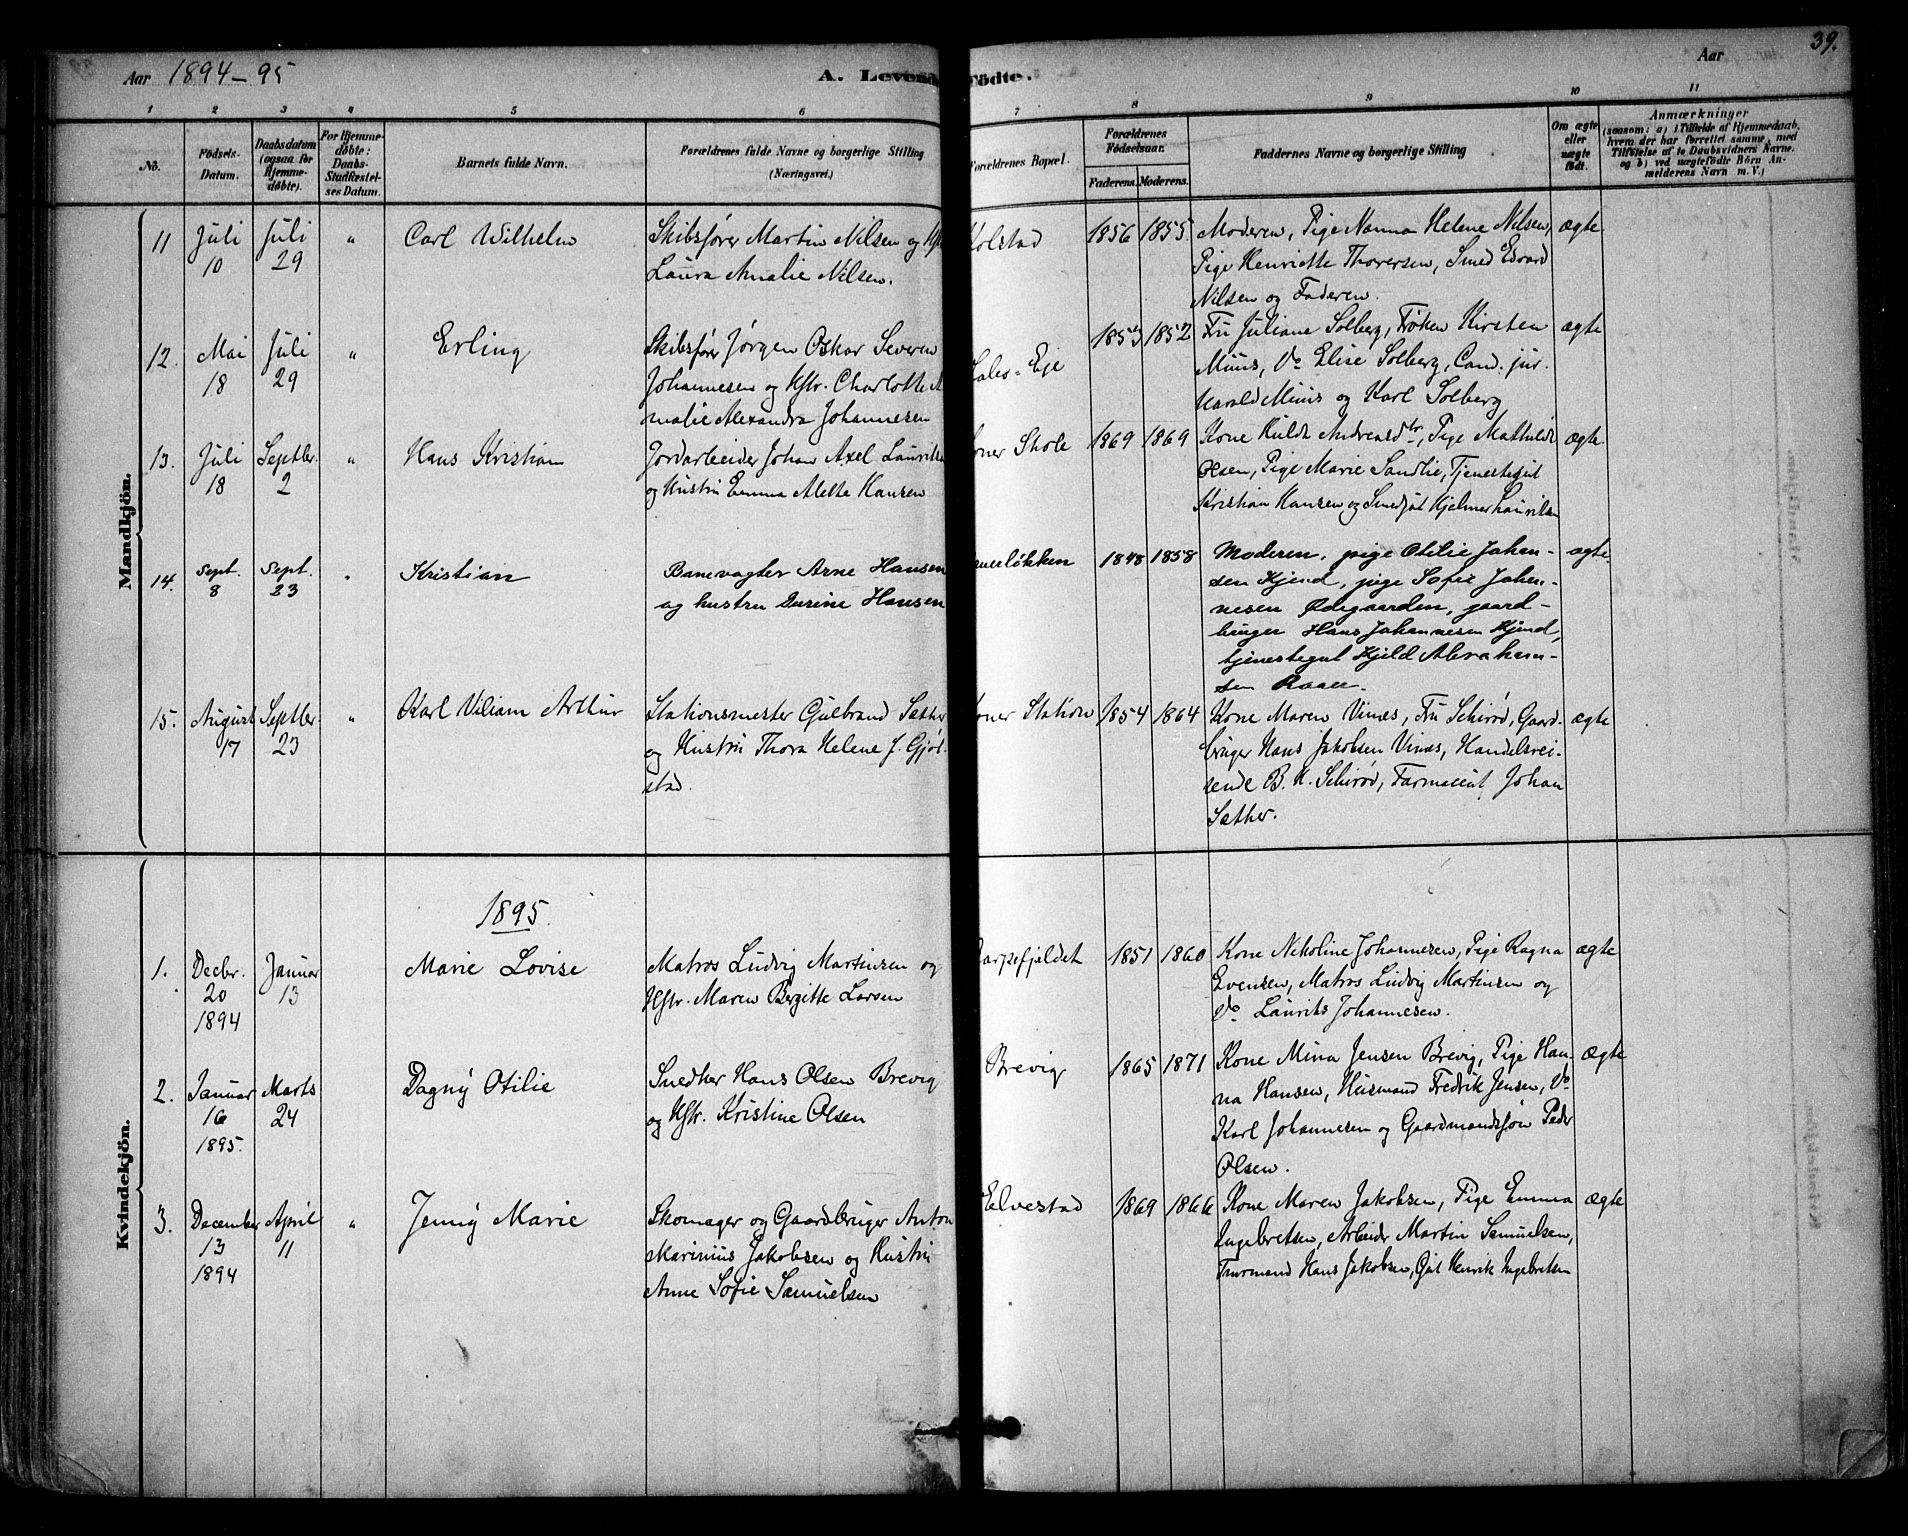 39.
Aar 1894-95
A. Levend Födte.
Aar
1 2 3 4 5 6 7 8 9 10 11
No.
Födsels-Datum.
Daabsdatum (ogsaa for Hjemmedöbte).
For Hjemmedöbte: Daabs-Stadfæstelses Datum.
Barnets fulde Navn.
Forældrenes fulde Navne og borgerlige Stilling (Næringsvei.)
Forældrenes Bopæl.
Forældrenes Födselsaar.
Faderens. Moderens.
Faddernes Navne og borgerlige Stilling
Om ægte eller uægte födt.
Anmærkninger
(saasom: a) i Tilfælde af Hjemmedaab, hvem der har forrettet samme, med Tilföielse af to Daabsvidners Navne. og b) ved uægtefödte Börn Anmelderens Navn m. V.)
Mandkjön.
11 Juli 10 Juli 29 " Carl Wilhelm
Skibsfører Martin Nilsen og Hstr.
Laura Amalie Nilsen.
Kolstad 1856 1855
Moderen, Pige Nanna Helene Nilsen,
Pige Henriette Thoresen, Smed Edvard
Nilsen og Faderen.
ægte
12. Mai 18 Juli 29 " Erling
Skibsfører Jørgen Oskar Severin
Johannesen og Hstr. Charlotte A
malie Alexandra Johannesen
Eje 1853 1852
Fru Juliane Solberg, Frøken Kirsten
Müüs, Do Elise Solberg, Cand. jur.
Harald Müüs og Karl Solberg
ægte
13. Juli 18 Septbr. 2 " Hans Kristian
Jordarbeider Johan Axel Lauritz
og Hustru Emma Alette Hansen
oner Skole 1869 1869
Kone Huldt Andreasdtr, Pige Mathilde
Olsen, Pige Marie Sandlie, Tjenestegut
Kristian Hansen og Smedgut Hjelmer Lauritsen
ægte
14. Sept. 8 Sept. 23 " Kristian
Banevogter Arne Hansen
og hustru Surine Hansen
løkken 1848 1858
Moderen, pige Otilie Johan-
sen Kjend, pige Sofie Johan-
nesen Ødegaarden, gaard-
bruger Hans Johannesen Kjend,
tjenestegut Kjeld Abraham-
sen Raaer.
ægte
15. August 17 Septbr. 23 " Karl Viliam Arttur
Stationsmester Gulbrand Sæther
og Hustru Thora Helene f. Gjøl-
stad.
oner Station 1854 1864
Kone Maren Vinæs, Fru Schirød, Gaard-
bruger Hans Jakobsen Vinæs, Handelsrei-
sende B. H. Schirød, Farmaceut Johan
Sæther.
ægte
Kvindekjön.
1895.
1. Decbr. 20 1894 Januar 13 Marie Lovise
Matros Ludvig Martinsen og
Hstr. Maren Bergitte Larsen
arpefjeldet 1851 1860
Kone Nikoline Johannesen, Pige Ragna
Evensen, Matros Ludvig Martinsen og
Do Laurits Johannesen.
ægte
2. Januar 16 1895. Marts 24 Dagny Otilie
Snedker Hans Olsen Brevig
og Hstr. Kristine Olsen
Brevig 1865 1871
Kone Mina Jensen Brevig, Pige Han-
na Hansen, Husmand Fredrik Jensen, Do
Karl Johannesen og Gaardmandssøn Peder
Olsen.
ægte
3. December 13 1894 April 11 " Jenny Marie
Skomager og Gaardbruger Anton
Marinius Jakobsen og Hustru
Anne Sofie Samuelsen
Elvestad 1869 1866
Kone Maren Jakobsen, Pige Emma
Ingebretsen, Arbeider Martin Samuelsen,
Hans Jakobsen, Gut Henrik Ingebretsen
ægte